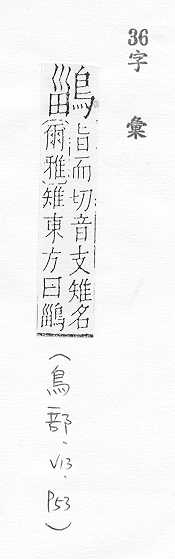 36字彙
鶅
旨而切音支雉名
(爾雅)雉東方曰鶅
(鳥部.V13.P53)